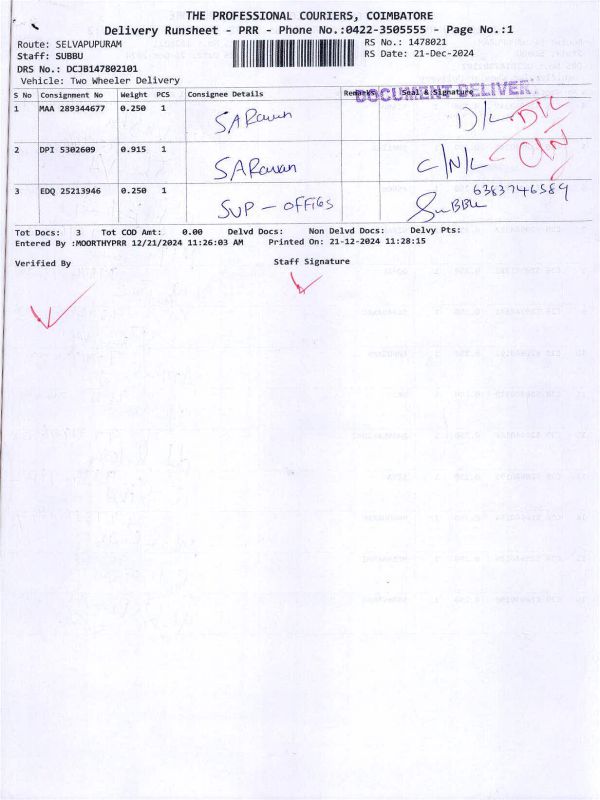 THE PROFESSIONAL COURIERS, COIMBATORE
Delivery Runsheet - PRR - Phone No.:0422-3505555 - Page No.:1
Route: SELVAPUPURAM
RS No.: 1478021
Staff: SUBBU
RS Date: 21-Dec-2024
DRS No.: DCJB147802101
Vehicle: Two Wheeler Delivery
DOCUMENT DELIVERY
S No Consignment No Weight PCS Consignee Details Remarks Seal & Signature
1 MAA 289344677 0.250 1 SARavan D/L D/L
2 DPI 5302609 0.915 1 SARavan C/N/L C/N
3 EDQ 25213946 0.250 1 SUP - OFFiGS SuBBU 6383746589
Tot Docs: 3 Tot COD Amt: 0.00 Delvd Docs: Non Delvd Docs: Delvy Pts:
Entered By :MOORTHYPRR 12/21/2024 11:26:03 AM Printed On: 21-12-2024 11:28:15
Verified By Staff Signature